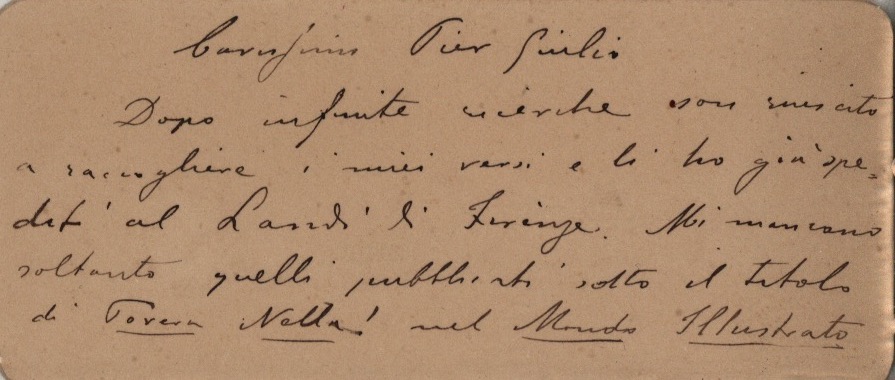 Carissimo Pier Giulio
Dopo infinite ricerche son riuscito
a raccogliere i miei versi e li ho già spe=
diti al Landi di Firenze. Mi mancano
soltanto quelli pubblicati sotto il titolo
di Povera Nella! nel Mondo Illustrato